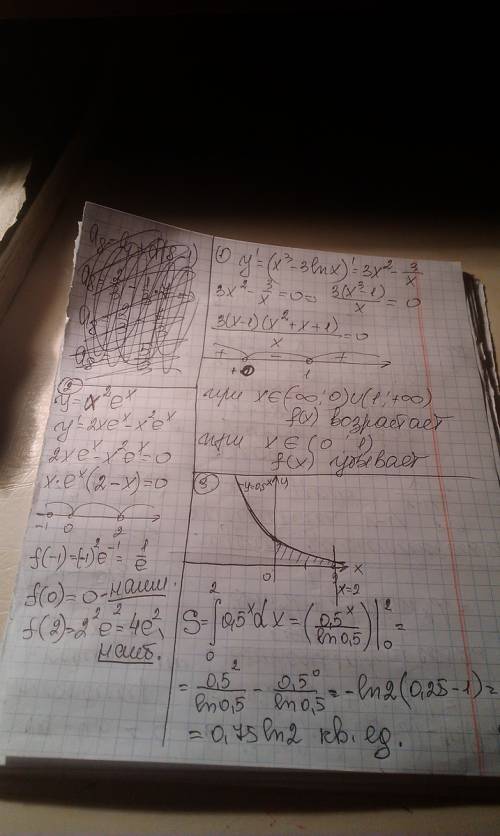 ① y' = (x³ - 3lnx)' = 3x² - 3/x
3x² - 3/x = 0 => 3(x³-1)/x = 0
3(x-1)(x²+x+1)/x = 0
+ - +
0 1
при x∈(-∞; 0)∪(1; +∞)
f(x) возрастает
при x∈(0; 1)
f(x) убывает
② y = x²eˣ
y' = 2xeˣ - x²eˣ
2xeˣ - x²eˣ = 0
x·eˣ(2-x) = 0
-1 0 2
f(-1) = (-1)²e⁻¹ = 1/e
f(0) = 0 - наим.
f(2) = 2²e² = 4e²,
наиб.
③ y=0,5ˣ y
0 2 x
x=2
S = ∫₀² 0,5ˣdx = (0,5ˣ/ln0,5)|₀² =
= 0,5²/ln0,5 - 0,5⁰/ln0,5 = -ln2(0,25-1) =
= 0,75ln2 кв. ед.